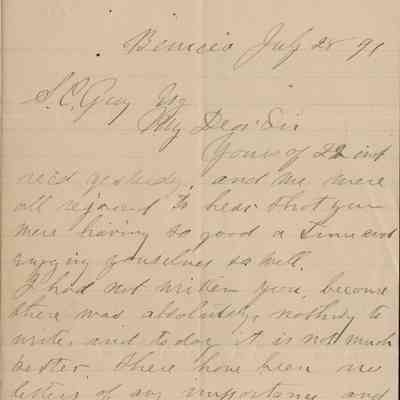 Benicia July 28 91
S. C. Gray Esq
My Dear Sir
Yours of 22 inst
rec'd yesterday, and we were
all rejoiced to hear that you
were having so good a time and
enjoying yourselves so well.
I had not written you, because
there was absolutely nothing to
write, and to day it is not much
better. There have been no
letters of any importance and